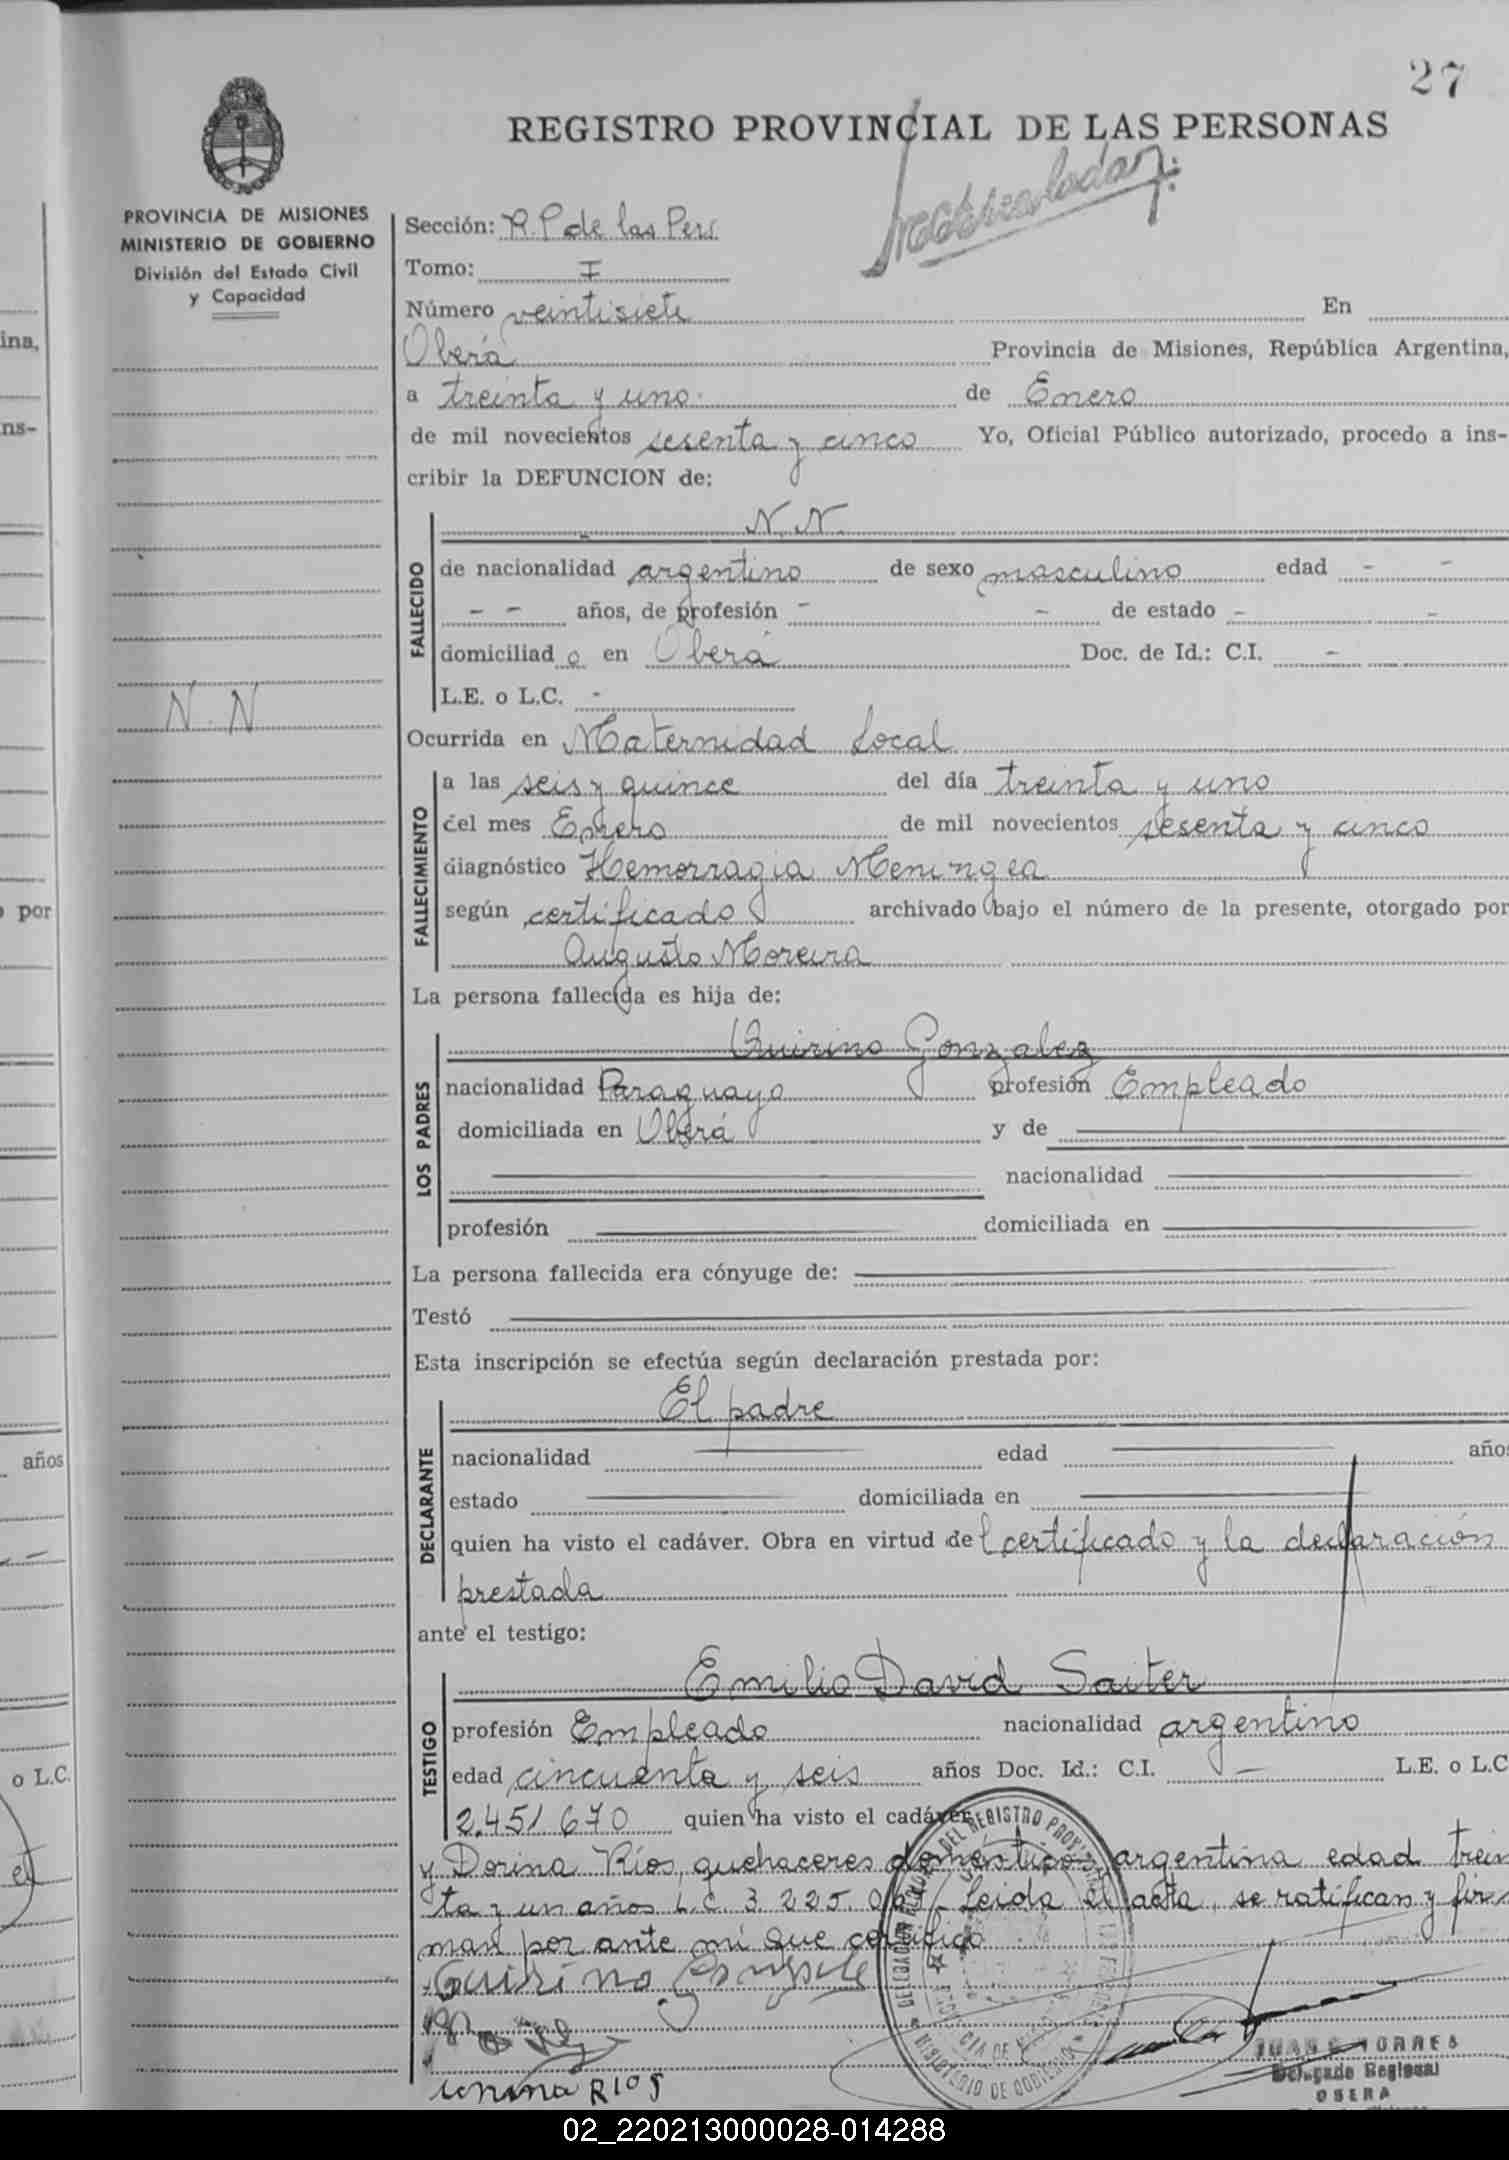 27
REGISTRO PROVINCIAL DE LAS PERSONAS
PROVINCIA DE MISIONES
MINISTERIO DE GOBIERNO
División del Estado Civil
y Capacidad
Sección: R.P. de las Pers
Tomo: I
Número veintisiete En
Oberá Provincia de Misiones, República Argentina,
a treinta y uno de Enero
de mil novecientos sesenta y cinco Yo, Oficial Público autorizado, procedo a ins-
cribir la DEFUNCION de:
N. N.
FALLECIDO
de nacionalidad argentino de sexo masculino edad - -
- - años, de profesión - - de estado - -
domiciliado en Oberá Doc. de Id.: C.I. -
L.E. o L.C. -
N. N
Ocurrida en Maternidad Local
FALLECIMIENTO
a las seis y quince del día treinta y uno
del mes Enero de mil novecientos sesenta y cinco
diagnóstico Hemorragia Meningea
según certificado archivado bajo el número de la presente, otorgado por
Augusto Moreira
La persona fallecida es hija de:
LOS PADRES
Quirino Gonzalez
nacionalidad Paraguayo profesión Empleado
domiciliada en Oberá y de
nacionalidad
profesión domiciliada en
La persona fallecida era cónyuge de:
Testó
Esta inscripción se efectúa según declaración prestada por:
DECLARANTE
El padre
nacionalidad edad años
estado domiciliada en
quien ha visto el cadáver. Obra en virtud del certificado y la declaración
prestada
ante el testigo:
TESTIGO
Emilio David Saiter
profesión Empleado nacionalidad argentino
edad cincuenta y seis años Doc. Id.: C.I. - L.E. o L.C
2.451.670 quien ha visto el cadáver
y Dorina Ríos, quehaceres domésticos, argentina edad trein
ta y un años L.C. 3.225. Leida el acta, se ratifican y fir
man por ante mi que certifico
Quirino
RIOS
JUAN TORRES
Delegado Regional
OBERA
ina,
ns-
o por
años
o L.C.
02_220213000028-014288